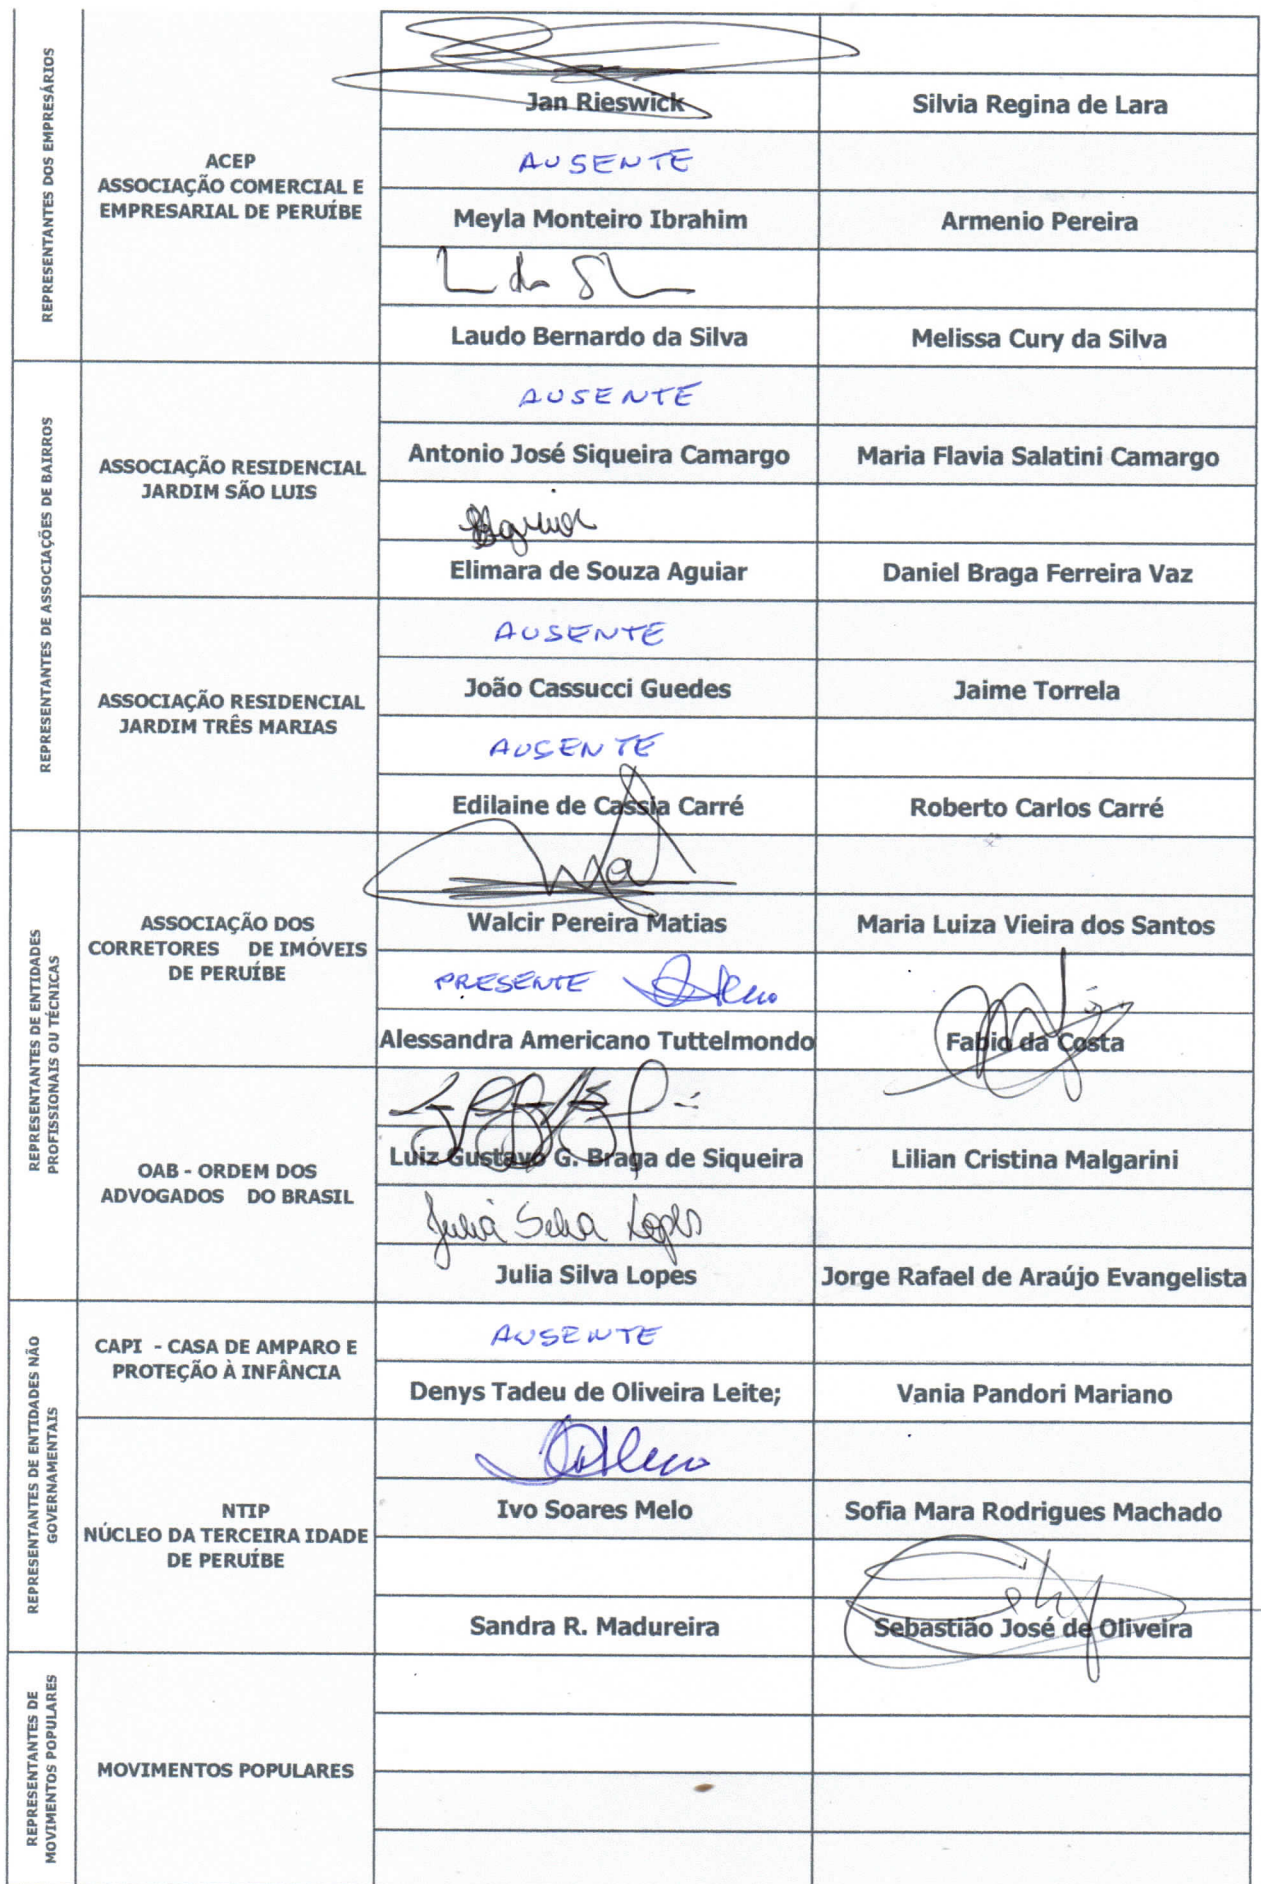 REPRESENTANTES DOS EMPRESÁRIOS
ACEP
ASSOCIAÇÃO COMERCIAL E
EMPRESARIAL DE PERUÍBE
Jan Rieswick
Silvia Regina de Lara
AUSENTE
Meyla Monteiro Ibrahim
Armenio Pereira
L da Sl
Laudo Bernardo da Silva
Melissa Cury da Silva
REPRESENTANTES DE ASSOCIAÇÕES DE BAIRROS
ASSOCIAÇÃO RESIDENCIAL
JARDIM SÃO LUIS
AUSENTE
Antonio José Siqueira Camargo
Maria Flavia Salatini Camargo
Elimara de Souza Aguiar
Daniel Braga Ferreira Vaz
ASSOCIAÇÃO RESIDENCIAL
JARDIM TRÊS MARIAS
AUSENTE
João Cassucci Guedes
Jaime Torrela
AUSENTE
Edilaine de Cassia Carré
Roberto Carlos Carré
REPRESENTANTES DE ENTIDADES
PROFISSIONAIS OU TÉCNICAS
ASSOCIAÇÃO DOS
CORRETORES DE IMÓVEIS
DE PERUÍBE
Walcir Pereira Matias
Maria Luiza Vieira dos Santos
PRESENTE
Alessandra Americano Tuttelmondo
Fabio da Costa
OAB - ORDEM DOS
ADVOGADOS DO BRASIL
Luiz Gustavo G. Braga de Siqueira
Lilian Cristina Malgarini
Julia Silva Lopes
Julia Silva Lopes
Jorge Rafael de Araújo Evangelista
REPRESENTANTES DE ENTIDADES NÃO
GOVERNAMENTAIS
CAPI - CASA DE AMPARO E
PROTEÇÃO À INFÂNCIA
AUSENTE
Denys Tadeu de Oliveira Leite;
Vania Pandori Mariano
NTIP
NÚCLEO DA TERCEIRA IDADE
DE PERUÍBE
Ivo Soares Melo
Sofia Mara Rodrigues Machado
Sandra R. Madureira
Sebastião José de Oliveira
REPRESENTANTES DE
MOVIMENTOS POPULARES
MOVIMENTOS POPULARES